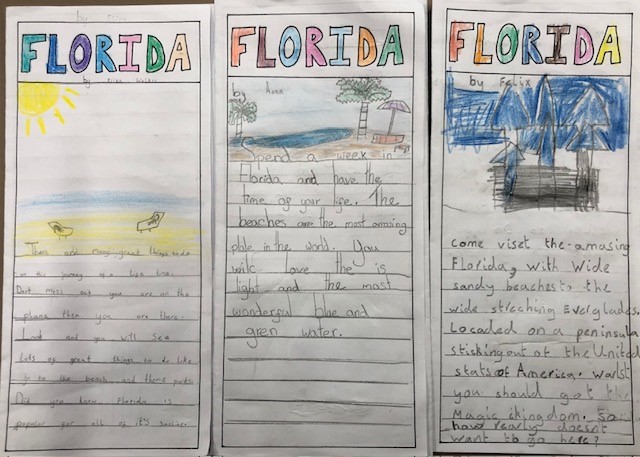 FLORIDA
by
There are many great things to do
on this journey of a life time.
Dont miss out you are on the
plane then you are there.
Land and you will see
lots of great things to do like
go to the beach and theme parks
Did you know Florida is
popular for all of it's
FLORIDA
by
Spend a week in
Florida and have the
time of your life. The
beaches are the most amazing
plale in the world. You
will love the is
light and the most
wonderful blue and
gren water.
FLORIDA
by Felix
come viset the amasing
Florida, with Wide
sandy beaches to the
wide streching Everglades.
Locaded on a peninsula
sticking out of the United
stats of America. Walst
you should got the
Magic Kingdom. So
how rearly doesnt
want to go here?